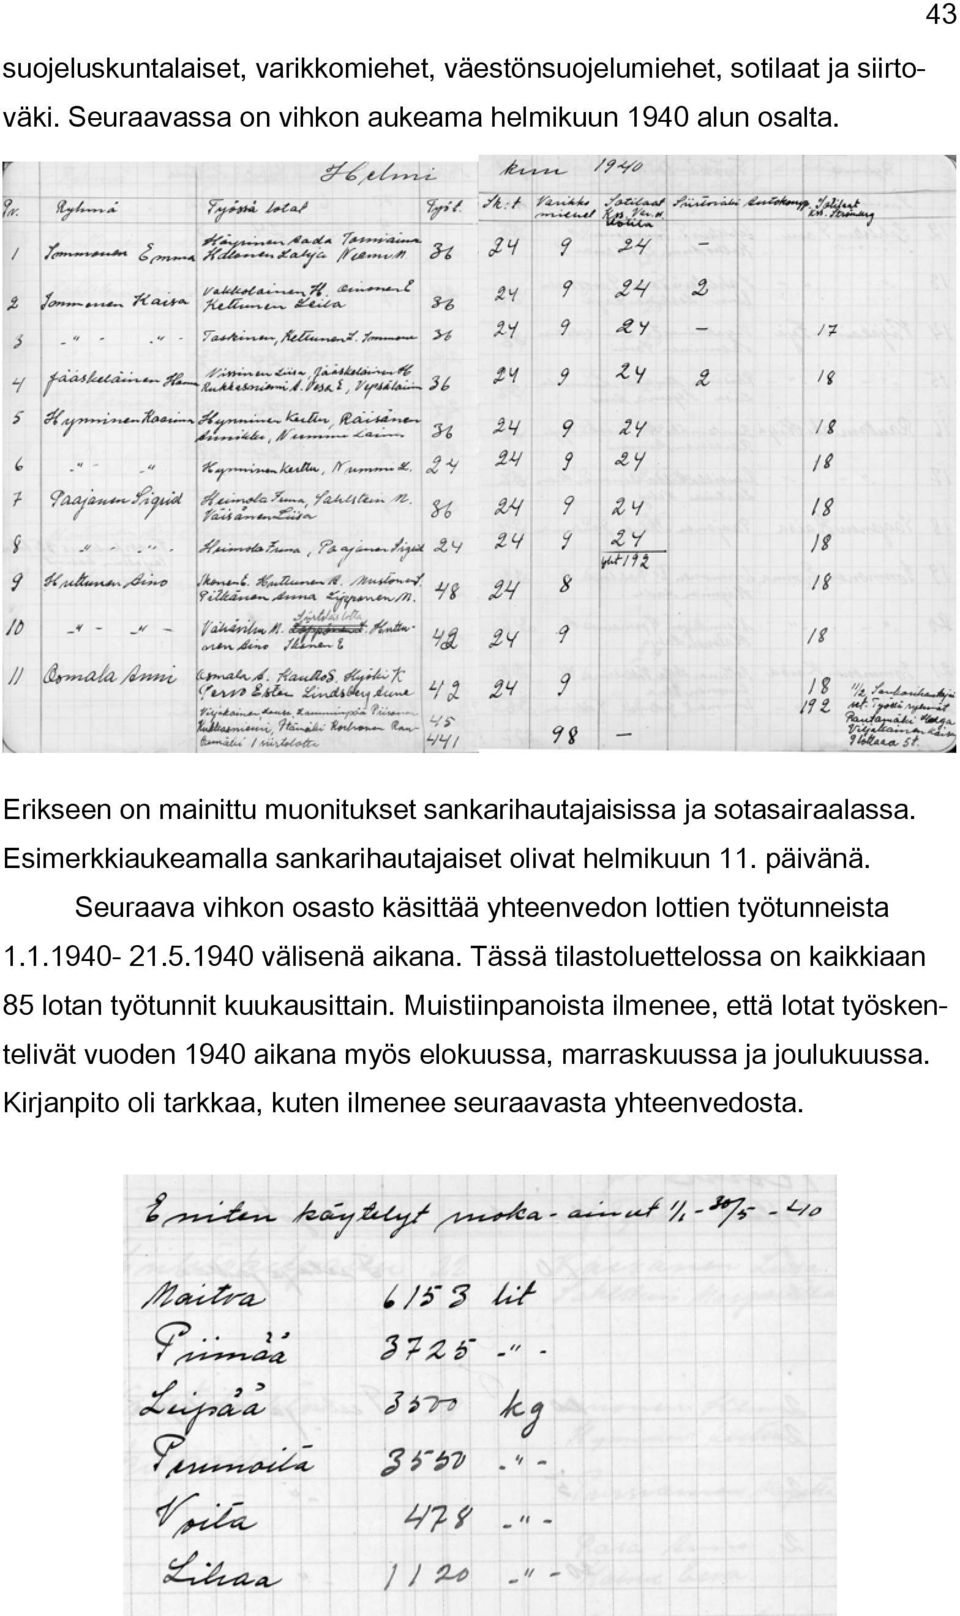 43
suojeluskuntalaiset, varikkomiehet, väestönsuojelumiehet, sotilaat ja siirto-
väki. Seuraavassa on vihkon aukeama helmikuun 1940 alun osalta.
Helmi kuu 1940
Pv. Ryhmä Työssä lotat Työt. Sk:t Varikko miehet Sotilaat Siirtoväki Autokomp. Sotilaat
1 Emma 36 24 9 24 -
2 Kaisa Kettunen Leila 36 24 9 24 2
3 -"- -"- Taskinen, Kettunen L. 36 24 9 24 - 17
4 Jääskeläinen Vissinen Liisa, Jääskeläinen H 36 24 9 24 2 18
5 Hynninen Hynninen Kerttu, Räisänen 36 24 9 24 18
6 -"- -"- Hynninen Kerttu, Nummi L. 24 24 9 24 18
7 Paajanen Sigrid Heimola Väisänen Liisa 36 24 9 24 18
8 -"- -"- Heimola Paajanen Sigrid 24 24 9 24 18
yht 192
9 Huttunen Aino Ikonen E. Huttunen A. Mustonen S. Pitkänen Anna Lipponen M. 48 24 8 18
10 -"- -"- 42 24 9 18
11 Oomala Anni Oomala A. Kautto S. Hyöki K Ester Lindsberg Aune 42 24 9 18
45 192
441 98 -
Erikseen on mainittu muonitukset sankarihautajaisissa ja sotasairaalassa.
Esimerkkiaukeamalla sankarihautajaiset olivat helmikuun 11. päivänä.
Seuraava vihkon osasto käsittää yhteenvedon lottien työtunneista
1.1.1940- 21.5.1940 välisenä aikana. Tässä tilastoluettelossa on kaikkiaan
85 lotan työtunnit kuukausittain. Muistiinpanoista ilmenee, että lotat työsken-
telivät vuoden 1940 aikana myös elokuussa, marraskuussa ja joulukuussa.
Kirjanpito oli tarkkaa, kuten ilmenee seuraavasta yhteenvedosta.
Eniten käytelyt ruoka-ainut 1/1 - 30/5 - 40
Maitoa 6153 lit
Piimää 3725 -"-
Leipää 3500 kg
Perunoita 3550 -"-
Voita 478 -"-
Lihaa 1120 -"-